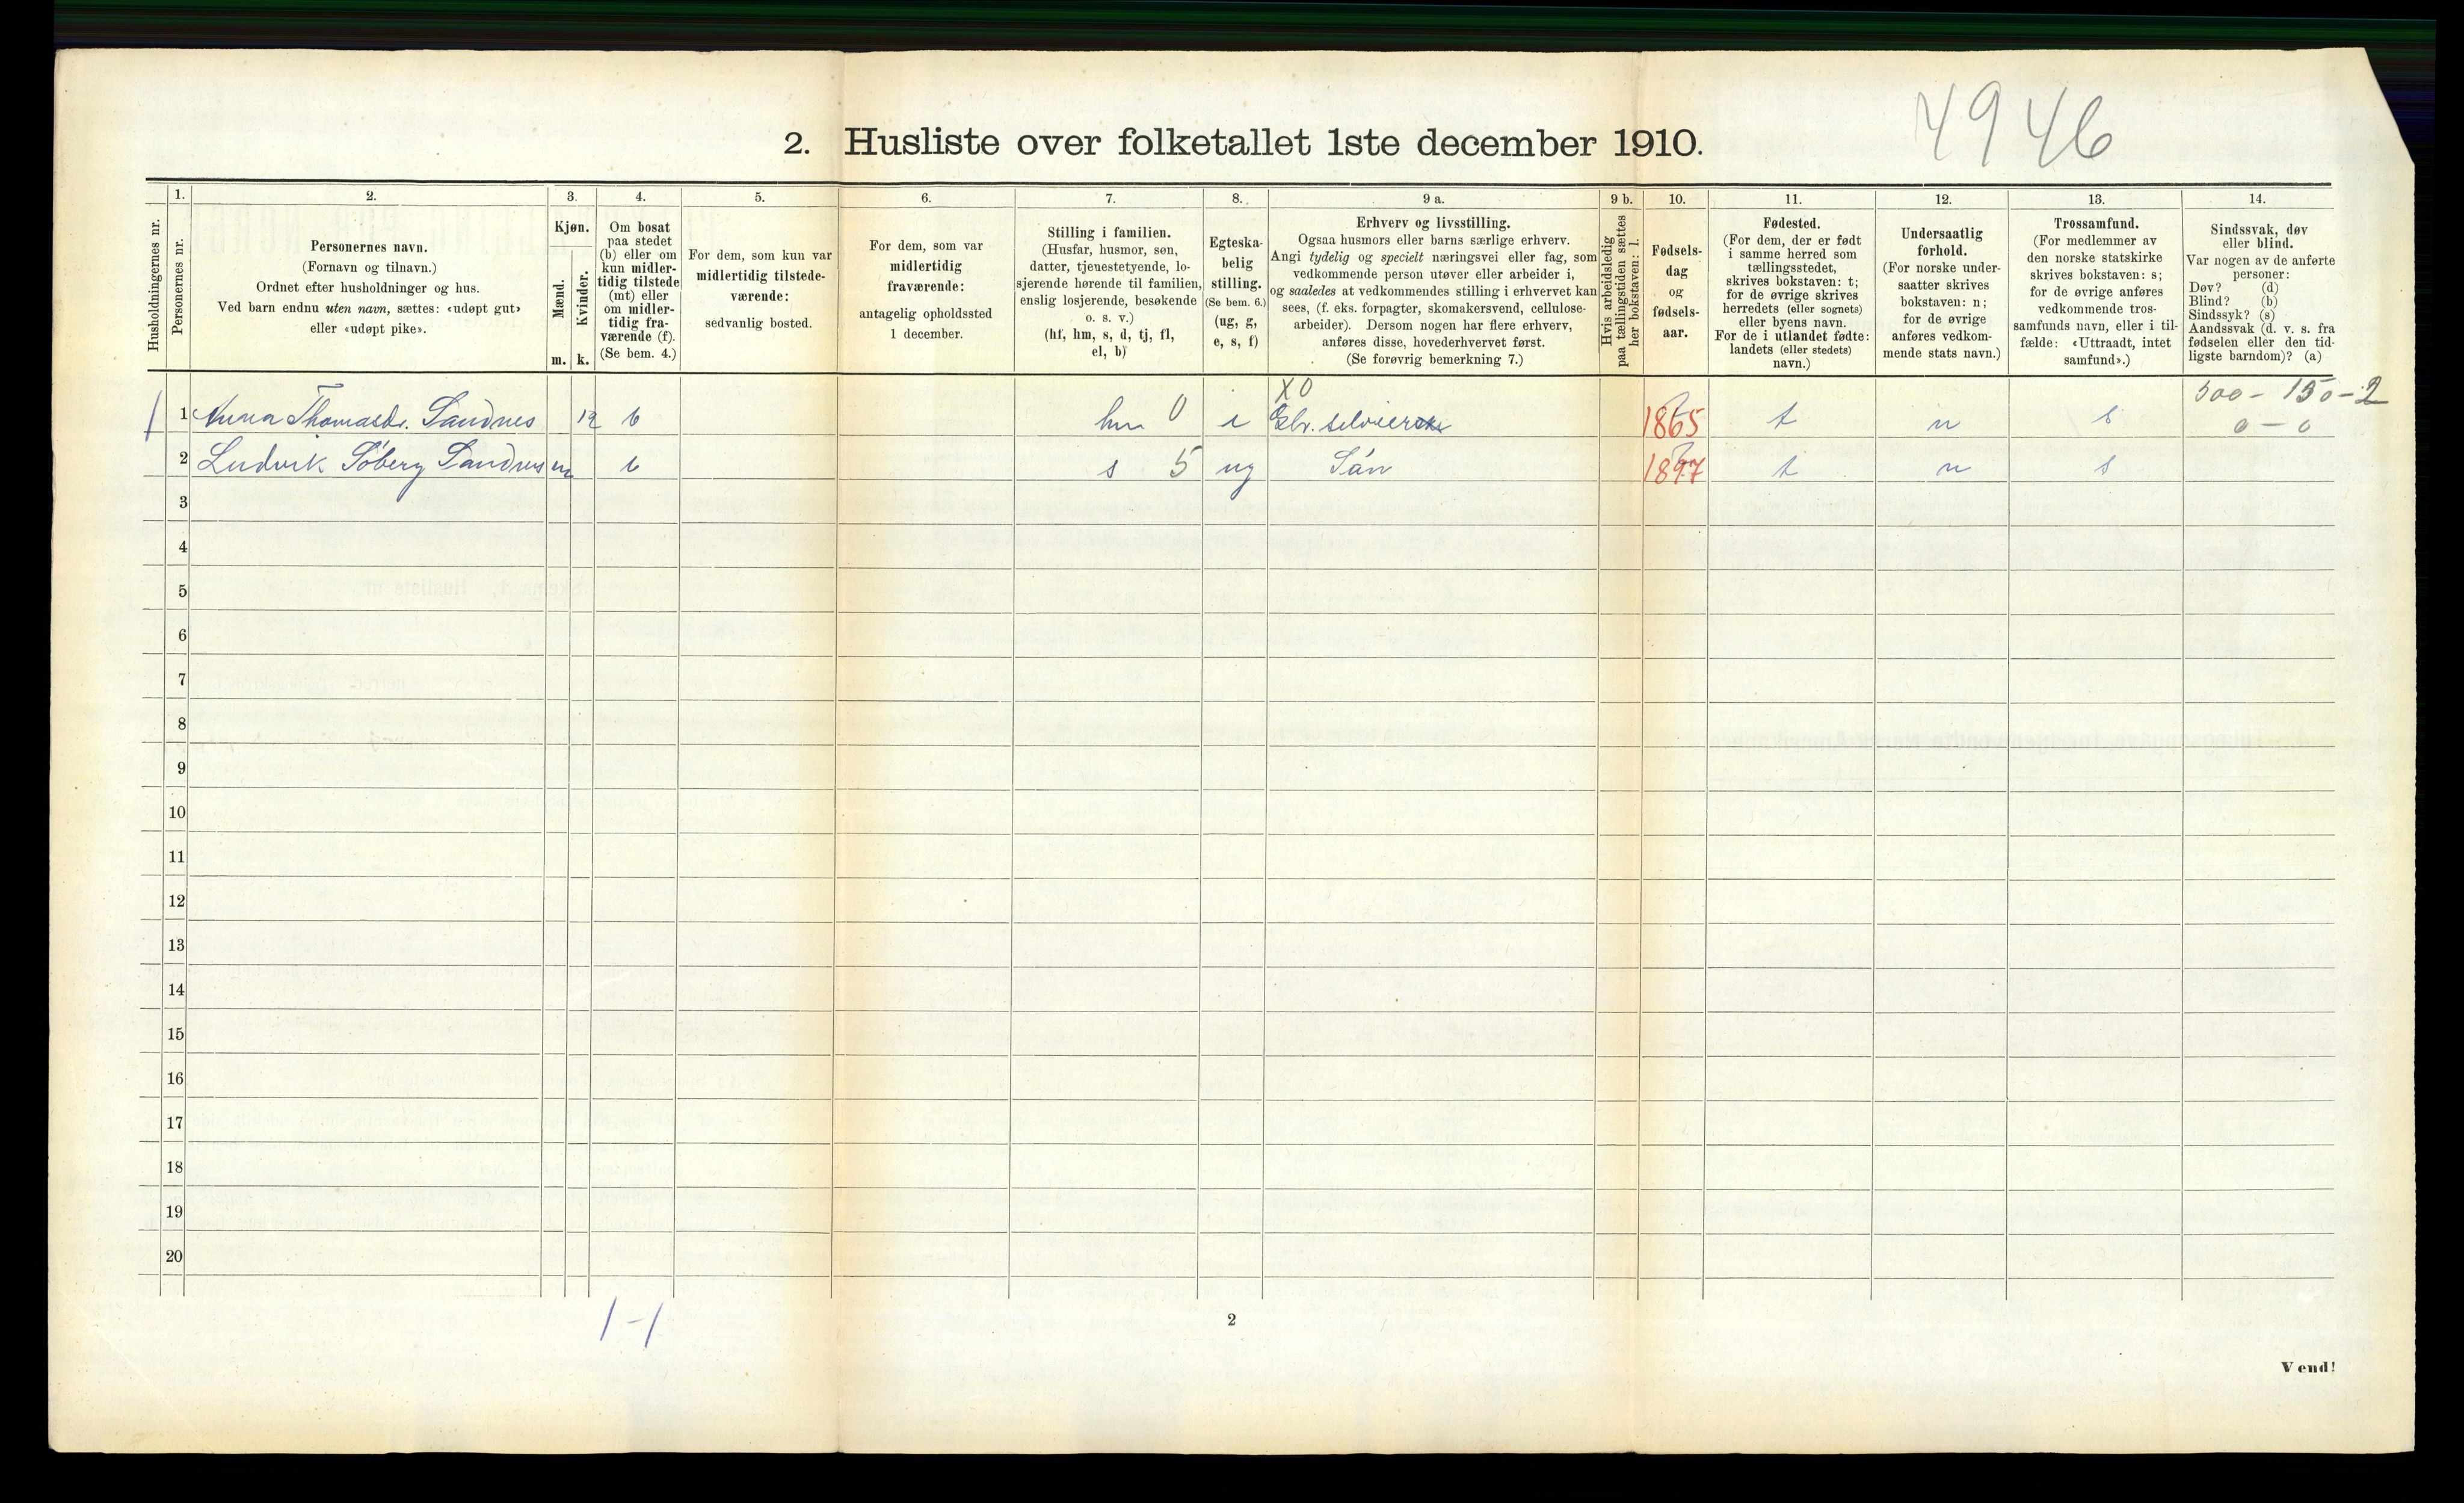 4946
2. Husliste over folketallet 1ste december 1910.
Husholdningernes nr.
1.
Personernes nr.
2.
Personernes navn.
(Fornavn og tilnavn.)
Ordnet efter husholdninger og hus.
Ved barn endnu uten navn, sættes: «udøpt gut»
eller «udøpt pike».
3.
Kjøn.
Mænd.
Kvinder.
m. k.
4.
Om bosat
paa stedet
(b) eller om
kun midler-
tidig tilstede
(mt) eller
om midler-
tidig fra-
værende (f).
(Se bem. 4.)
5.
For dem, som kun var
midlertidig tilstede-
værende:
sedvanlig bosted.
6.
For dem, som var
midlertidig
fraværende:
antagelig opholdssted
1 december.
7.
Stilling i familien.
(Husfar, husmor, søn,
datter, tjenestetyende, lo-
sjerende hørende til familien,
enslig losjerende, besøkende
o. s. v.)
(hf, hm, s, d, tj, fl,
el, b)
8.
Egteska-
belig
stilling.
(Se bem. 6.)
(ug, g,
e, s, f)
9 a.
Erhverv og livsstilling.
Ogsaa husmors eller barns særlige erhverv.
Angi tydelig og specielt næringsvei eller fag, som
vedkommende person utøver eller arbeider i,
og saaledes at vedkommendes stilling i erhvervet kan
sees, (f. eks. forpagter, skomakersvend, cellulose-
arbeider). Dersom nogen har flere erhverv,
anføres disse, hovederhvervet først.
(Se forøvrig bemerkning 7.)
9 b.
Hvis arbeidsledig
paa tællingstiden sættes
her bokstaven: l.
10.
Fødsels-
dag
og
fødsels-
aar.
11.
Fødested.
(For dem, der er født
i samme herred som
tællingsstedet,
skrives bokstaven: t;
for de øvrige skrives
herredets (eller sognets)
eller byens navn.
For de i utlandet fødte:
landets (eller stedets)
navn.)
12.
Undersaatlig
forhold.
(For norske under-
saatter skrives
bokstaven: n;
for de øvrige
anføres vedkom-
mende stats navn.)
13.
Trossamfund.
(For medlemmer av
den norske statskirke
skrives bokstaven: s;
for de øvrige anføres
vedkommende tros-
samfunds navn, eller i til-
fælde: «Uttraadt, intet
samfund».)
14.
Sindssvak, døv
eller blind.
Var nogen av de anførte
personer:
Døv? (d)
Blind? (b)
Sindssyk? (s)
Aandssvak (d. v. s. fra
fødselen eller den tid-
ligste barndom)? (a)
X0 500 - 150 - 2
1 1 Anna Thomasdr. Sandnes k b hm 0 e Gbr. selveier 1865 t n s 0 - 0
2 Ludvik Søberg Sandnes m b s 5 ug Søn 1897 t n s
3
4
5
6
7
8
9
10
11
12
13
14
15
16
17
18
19
20
1-1
2
Vend!